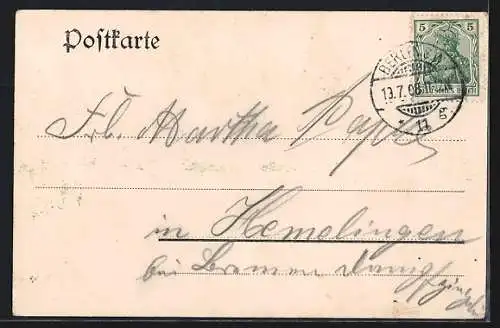 Postkarte
5 5
BERLIN
19.7.08
11 g
Frl. Martha
in Hemelingen
bei Bremen